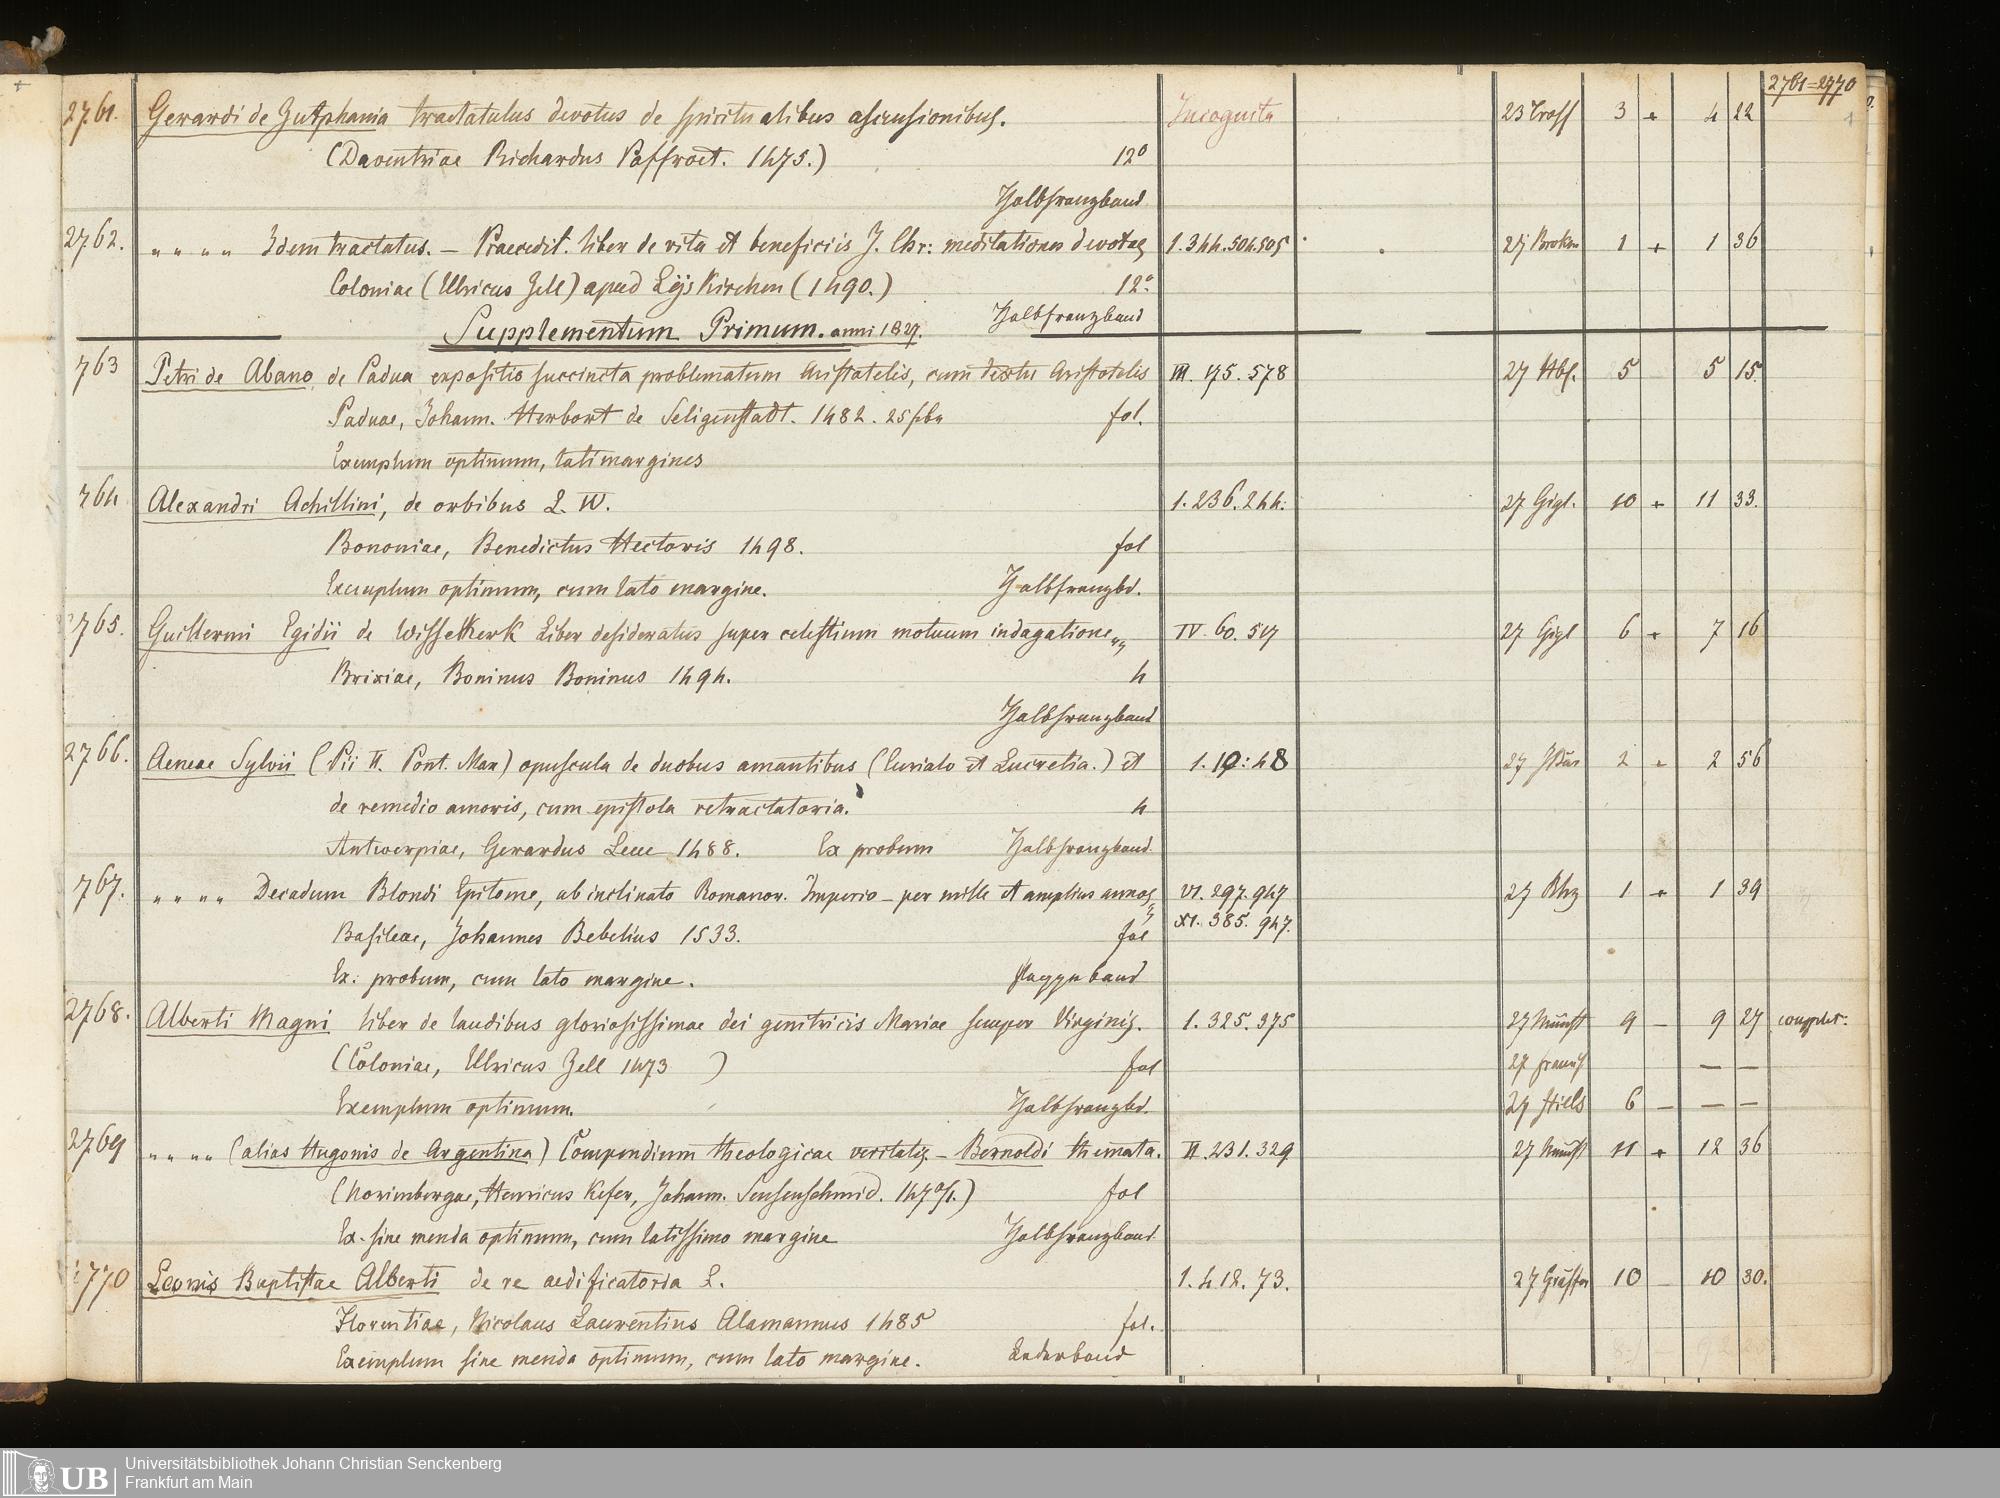 2761-2770
2761. Gerardi de Zutphania tractatulus devotus de spiritualibus ascensionibus. Incognita 3 + 4 22
(Daventriae Richardus Paffroet. 1475.) 12°
Halbfranzband
2762. " " " " Idem tractatus. — Praecedit. liber de vita et beneficiis J. Chr: meditationes devotae 1. 344. 504. 505 1 + 1 36
Coloniae (Ulricus Zell) apud Lijskirchen (1490.) 12°
Halbfranzband
Supplementum Primum. anni 1827.
763 Petri de Abano de Padua expositio succincta problematum Aristotelis, cum textu Aristotelis III. 75. 578 5 5 15.
Paduae, Johann. Herbort de Seligenstadt. 1482. fol.
Exemplum optimum, lati margines
764 Alexandri Achillini, de orbibus L. IV. 1. 236. 244. 27 Gigl. 10 + 11 33.
Bononiae, Benedictus Hectoris 1498. fol
Exemplum optimum, cum lato margine. Halbfranzbd.
2765. Guillermi Egidii de Wissekerk Liber desideratus super celestium motuum indagatione IV. 60. 517 27 Gigl 6 + 7 16
Brixiae, Boninus Boninus 1494. 4
Halbfranzband
2766. Aeneae Sylvii (Pii II. Pont. Max) opuscula de duobus amantibus (Curialo et Lucretia.) et 1. 19: 48 2 - 2 56
de remedio amoris, cum epistola retractatoria. 4
Antwerpiae, Gerardus Leeu 1488. Ex probum Halbfranzband.
767. " " " " Decadum Blondi Epitome, ab inclinato Romanor. Imperio — per mille et amplius annos VI. 297. 947 1 + 1 39
XI. 385. 947.
Basileae, Johannes Bebelius 1533. fol
Ex: probum, cum lato margine. Pappeband
2768. Alberti Magni liber de laudibus gloriosissimae dei genitricis Mariae semper Virginis. 1. 325. 375 9 — 9 27 complet.
(Coloniae, Ulricus Zell 1473 ) fol — —
Exemplum optimum. Halbfranzbd. 6 — — —
2769 " " " " (alias Hugonis de Argentina) Compendium theologicae veritatis. — Bernoldi themata. II. 231. 329 11 + 12 36
(Norimbergae, Henricus Kefer, Johann. Sensenschmid. 1470/1.) fol
Ex. sine menda optimum, cum latissimo margine Halbfranzband
2770 Leonis Baptistae Alberti de re aedificatoria L. 1. 412. 73. 10 — 10 30.
Florentiae, Nicolaus Laurentius Alamannus 1485 fol.
Exemplum sine menda optimum, cum lato margine. Lederband
UB Universitätsbibliothek Johann Christian Senckenberg
Frankfurt am Main